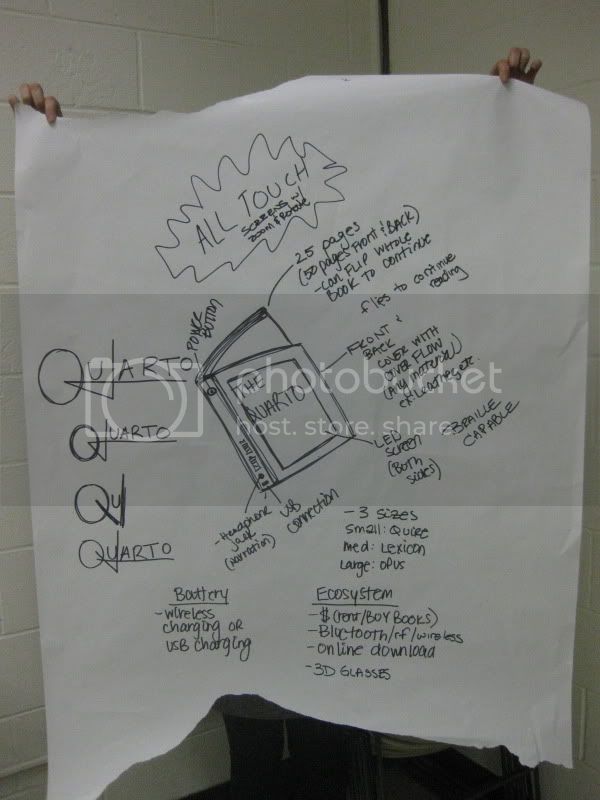 ALL TOUCH
SCREENS w/
ZOOM & ROTATE
25 pages
(50 pages FRONT & BACK)
- CAN FLIP WHOLE
BOOK TO CONTINUE
flips to continue
reading
- POWER
BUTTON
FRONT &
BACK
COVER WITH
OVER FLOW
(Any material)
ex: leather, etc.
THE
QUARTO
QUARTO
LED
SCREEN
(Both
sides)
- BRAILLE
CAPABLE
QUARTO
QUARTO
QU
QUARTO
- Headphone
jack
(narration)
USB
connection
- 3 sizes
small: Quire
med: Lexicon
Large: opus
Battery
- wireless
charging OR
USB charging
Ecosystem
- $ (rent/BUY BOOKS)
- Bluetooth/rf/wireless
- online download
- 3D GLASSES
photobucket
host. store. share.